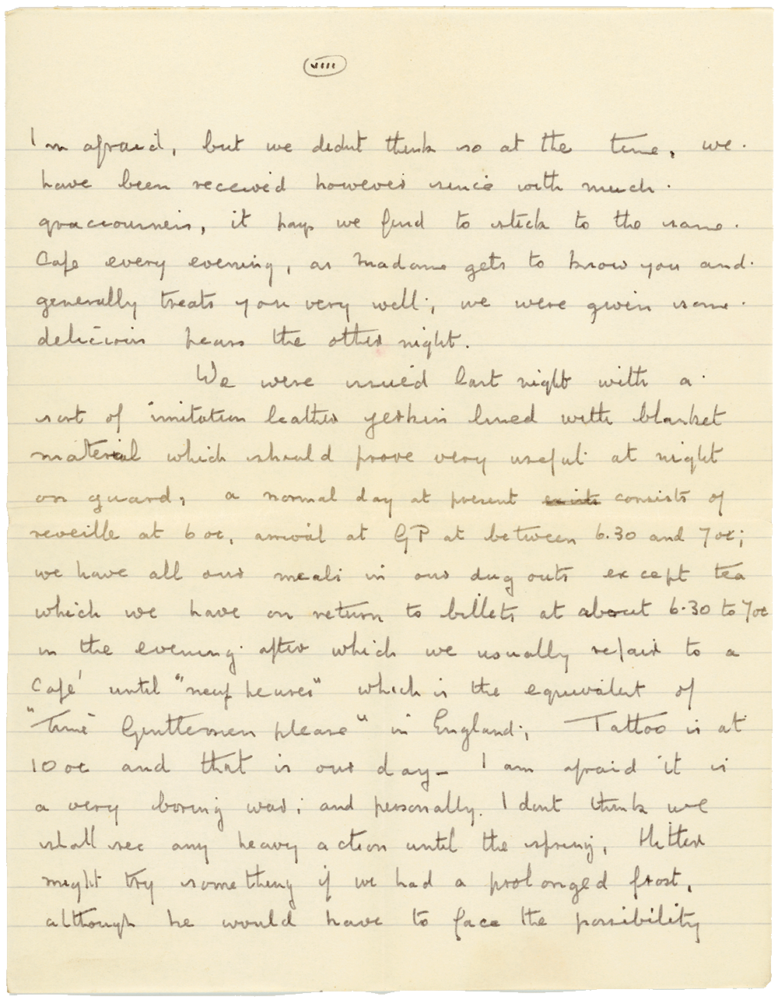 VIII
I'm afraid, but we didnt think so at the time, we
have been received however since with much
graciousness, it pays we find to stick to the same
Cafe every evening, as Madame gets to know you and
generally treats you very well; we were given some
delicious pears the other night.
We were issued last night with a
sort of imitation leather yerkin lined with blanket
material which should prove very useful at night
on guard; a normal day at present consists of
reveille at 6 oc, arrival at GP at between 6.30 and 7oc;
we have all our meals in our dug outs except tea
which we have on return to billets at about 6.30 to 7oc
in the evening after which we usually repair to a
Café until "neuf heures" which is the equivalent of
"Time Gentlemen please" in England; Tattoo is at
10 oc and that is our day - I am afraid it is
a very boring war; and personally. I dont think we
shall see any heavy action until the spring, Hitler
might try something if we had a prolonged frost,
although he would have to face the possibility